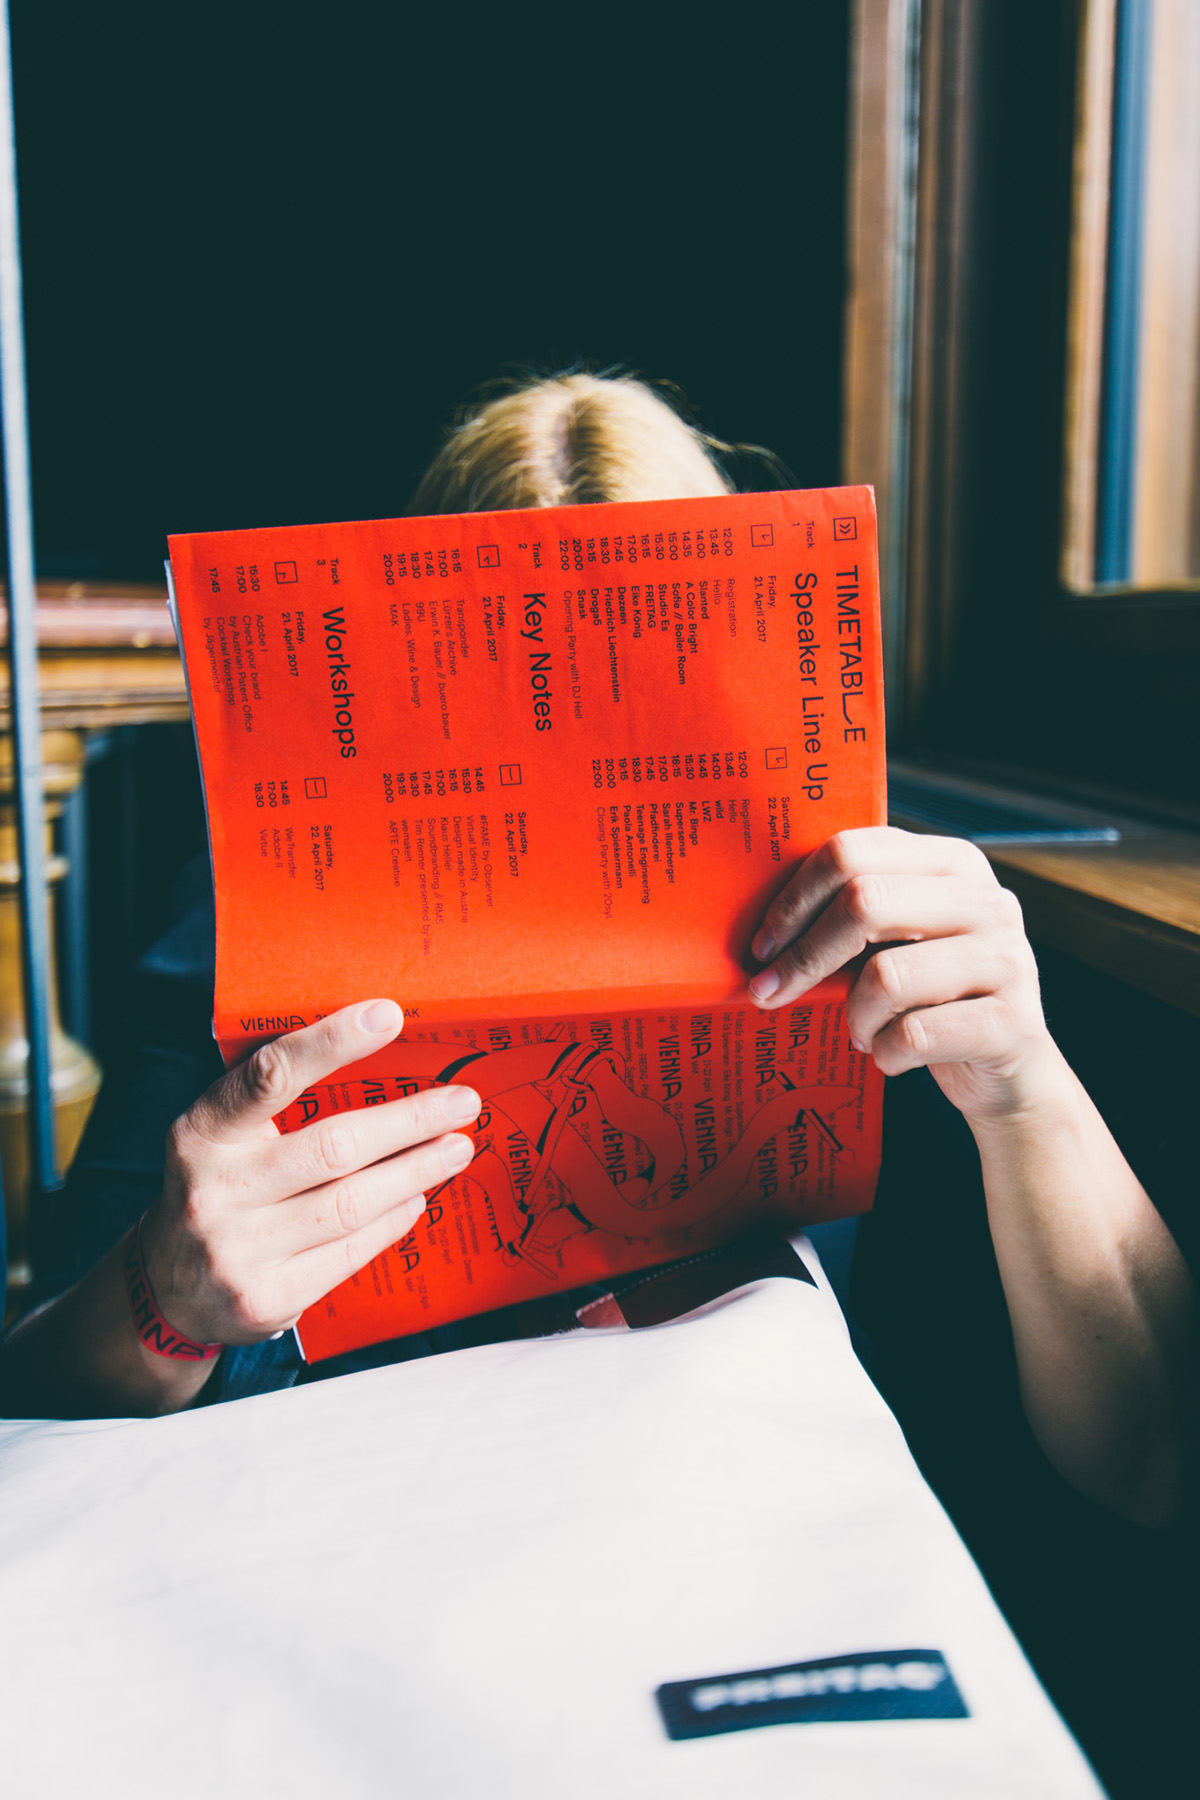 TIMETABLE
Track 1
Speaker Line Up
Friday,
21. April 2017
12:00 Registration
13:45 Hello
14:00 Slanted
14:35 A Color Bright
15:00 Sofie // Boiler Room
15:30 Studio Es
16:15 FREITAG
17:00 Eike König
17:45 Dezeen
18:30 Friedrich Liechtenstein
19:15 Droga5
20:00 Snask
22:00 Opening Party with DJ Hell
Saturday,
22. April 2017
12:00 Registration
13:45 Hello
14:00 wild
14:45 LWZ
15:30 Mr. Bingo
16:15 Supersense
17:00 Sarah Illenberger
17:45 Pfadfinderei
18:30 Teenage Engineering
19:15 Paola Antonelli
20:00 Erik Spiekermann
22:00 Closing Party with 20syl
Track 2
Key Notes
Friday,
21. April 2017
16:15 Transponder
17:00 Lürzer's Archive
17:45 Erwin K. Bauer // buero bauer
18:30 99U
19:15 Ladies, Wine & Design
20:00 MAK
Saturday,
22. April 2017
14:45 #FAME by Observer
15:30 Virtual Identity
16:15 Design made in Austria
17:00 Klaus Heller
17:45 Soundbranding // RMS
18:30 Tim Renner presented by awc
19:15 wemakeit
20:00 ARTE Creative
Track 3
Workshops
Friday,
21. April 2017
15:30 Adobe I
17:00 Check your brand
by Austrian Patent Office
17:45 Cocktail Workshop
by Jägermeister
Saturday,
22. April 2017
14:45 WeTransfer
17:00 Adobe II
18:30 Virtue
VIENNA
VIENNA 21-22 April
VIENNA
VIENNA
VIENNA
VIENNA
VIENNA
VIENNA
VIENNA
VIENNA
FREITAG